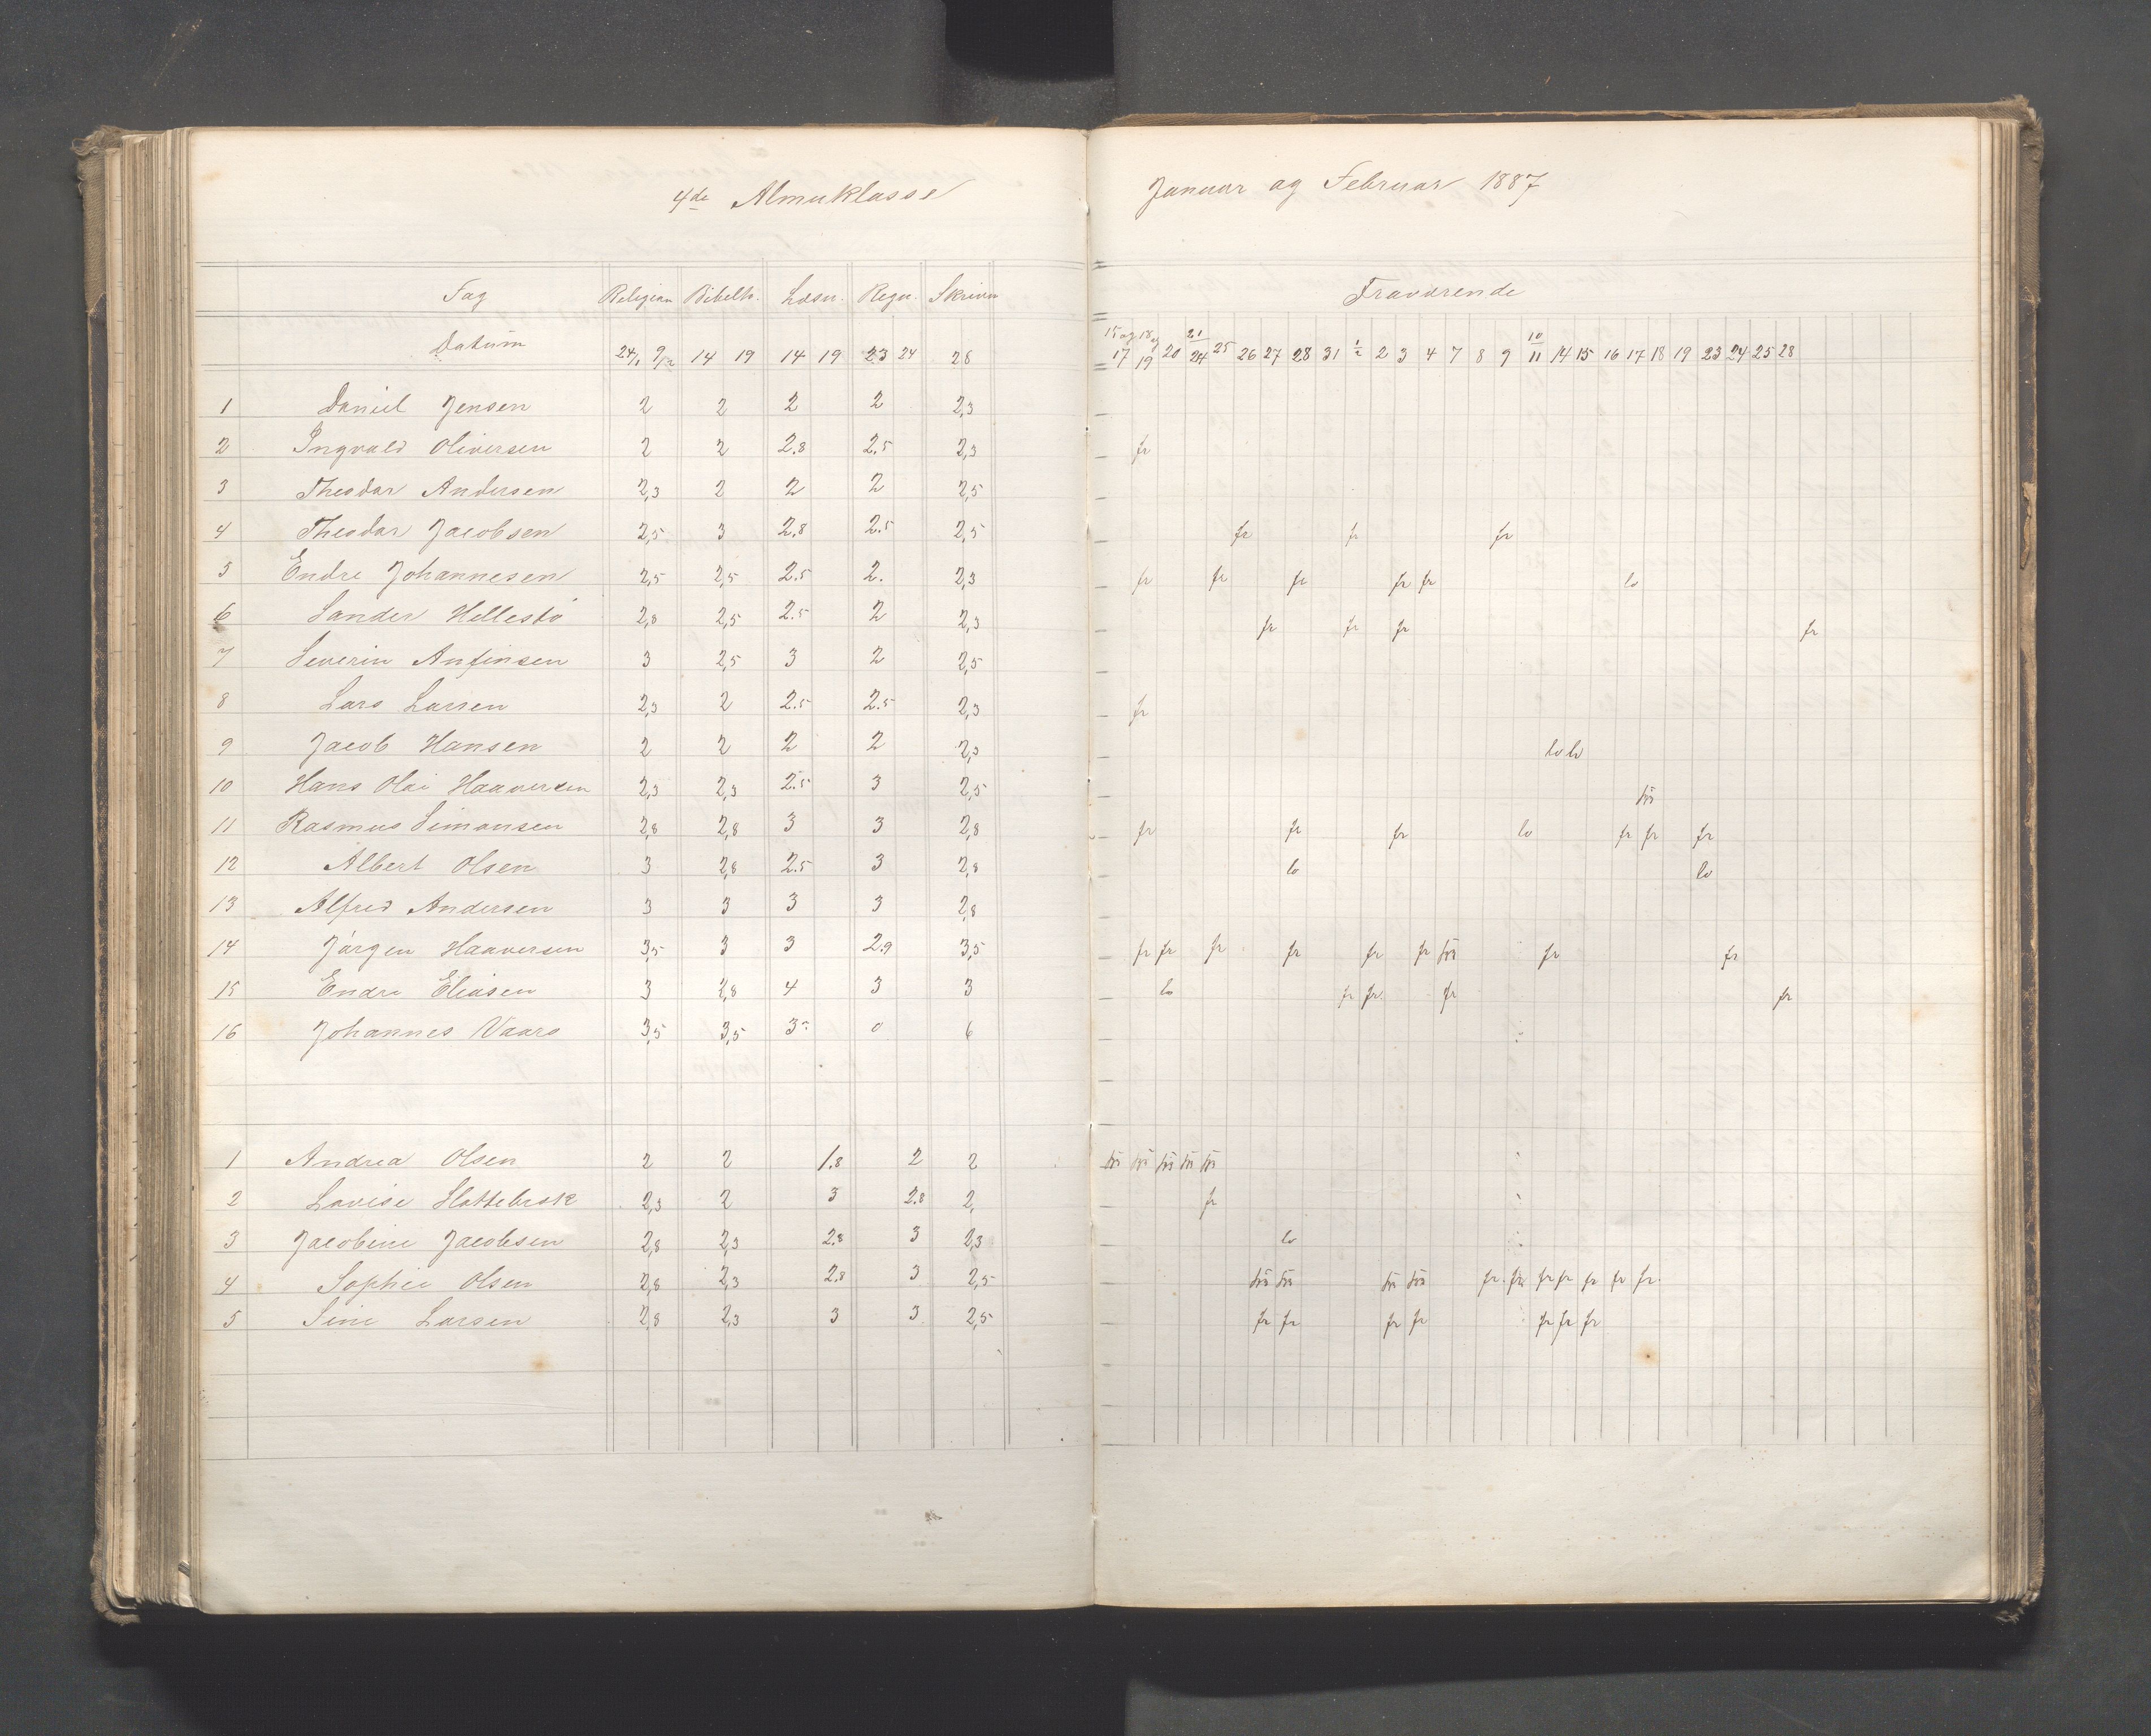 4de Almuklasse
Januar og Februar 1887
Fag Religion Bibelh. Læsn. Regn. Skrivn
Fraværende
Datum 24/1 9/2 14 19 14 19 23 24 28
15 og 17 18 og 19 20 21/24 25 26 27 28 31 1/2 2 3 4 7 8 9 10/11 14 15 16 17 18 19 23 24 25 28
1 Daniel Jensen 2 2 2 2 2,3
2 Ingvald Oliversen 2 2 2.8 2.5 2,3 fr
3 Theodor Andersen 2,3 2 2 2 2,5
4 Theodor Jacobsen 2,5 3 2.8 2.5 2,5 fr fr fr
5 Endre Johannesen 2,5 2,5 2.5 2. 2,3 fr fr fr fr fr lo
6 Sander Hellestø 2,8 2,5 2.5 2 2,3 fr fr fr fr
7 Severin Anfinsen 3 2,5 3 2 2,5
8 Lars Larsen 2,3 2 2.5 2.5 2,3 fr
9 Jacob Hansen 2 2 2 2 2,3 lo lo
10 Hans Olai Haaversen 2,3 2,3 2.5 3 2,5
11 Rasmus Simonsen 2,8 2,8 3 3 2,8 fr fr fr lo fr fr fr
12 Albert Olsen 3 2,8 2.5 3 2,8 lo lo
13 Alfred Andersen 3 3 3 3 2,8
14 Jørgen Haaversen 3,5 3 3 2.9 3,5 fr fr fr fr fr fr fr fr
15 Endre Eliasen 3 2,8 4 3 3 lo fr fr fr fr
16 Johannes Vaars 3,5 3,5 3 0 6
1 Andrea Olsen 2 2 1.8 2 2
2 Lovise 2,3 2 3 2.8 2, fr
3 Jacobine Jacobsen 2,8 2,3 2.8 3 2,3 lo
4 Sophie Olsen 2,8 2,3 2.8 3 2,5 fr fr fr fr fr fr
5 Sine Larsen 2,8 2,3 3 3 2,5 fr fr fr fr fr fr fr